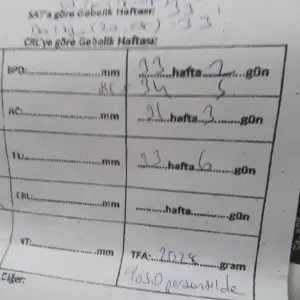 SAT'a göre Gebelik Haftası: 33
CRL'ye göre Gebelik Haftası:
BPD:..................mm 33 hafta 2 gün
HC 34 5
AC:..................mm 31 hafta 3 gün
FL:..................mm 33 hafta 6 gün
CRL:..................mm ..........hafta..........gün
VT:..................mm TFA: 2028 gram
Diğer: persantilde